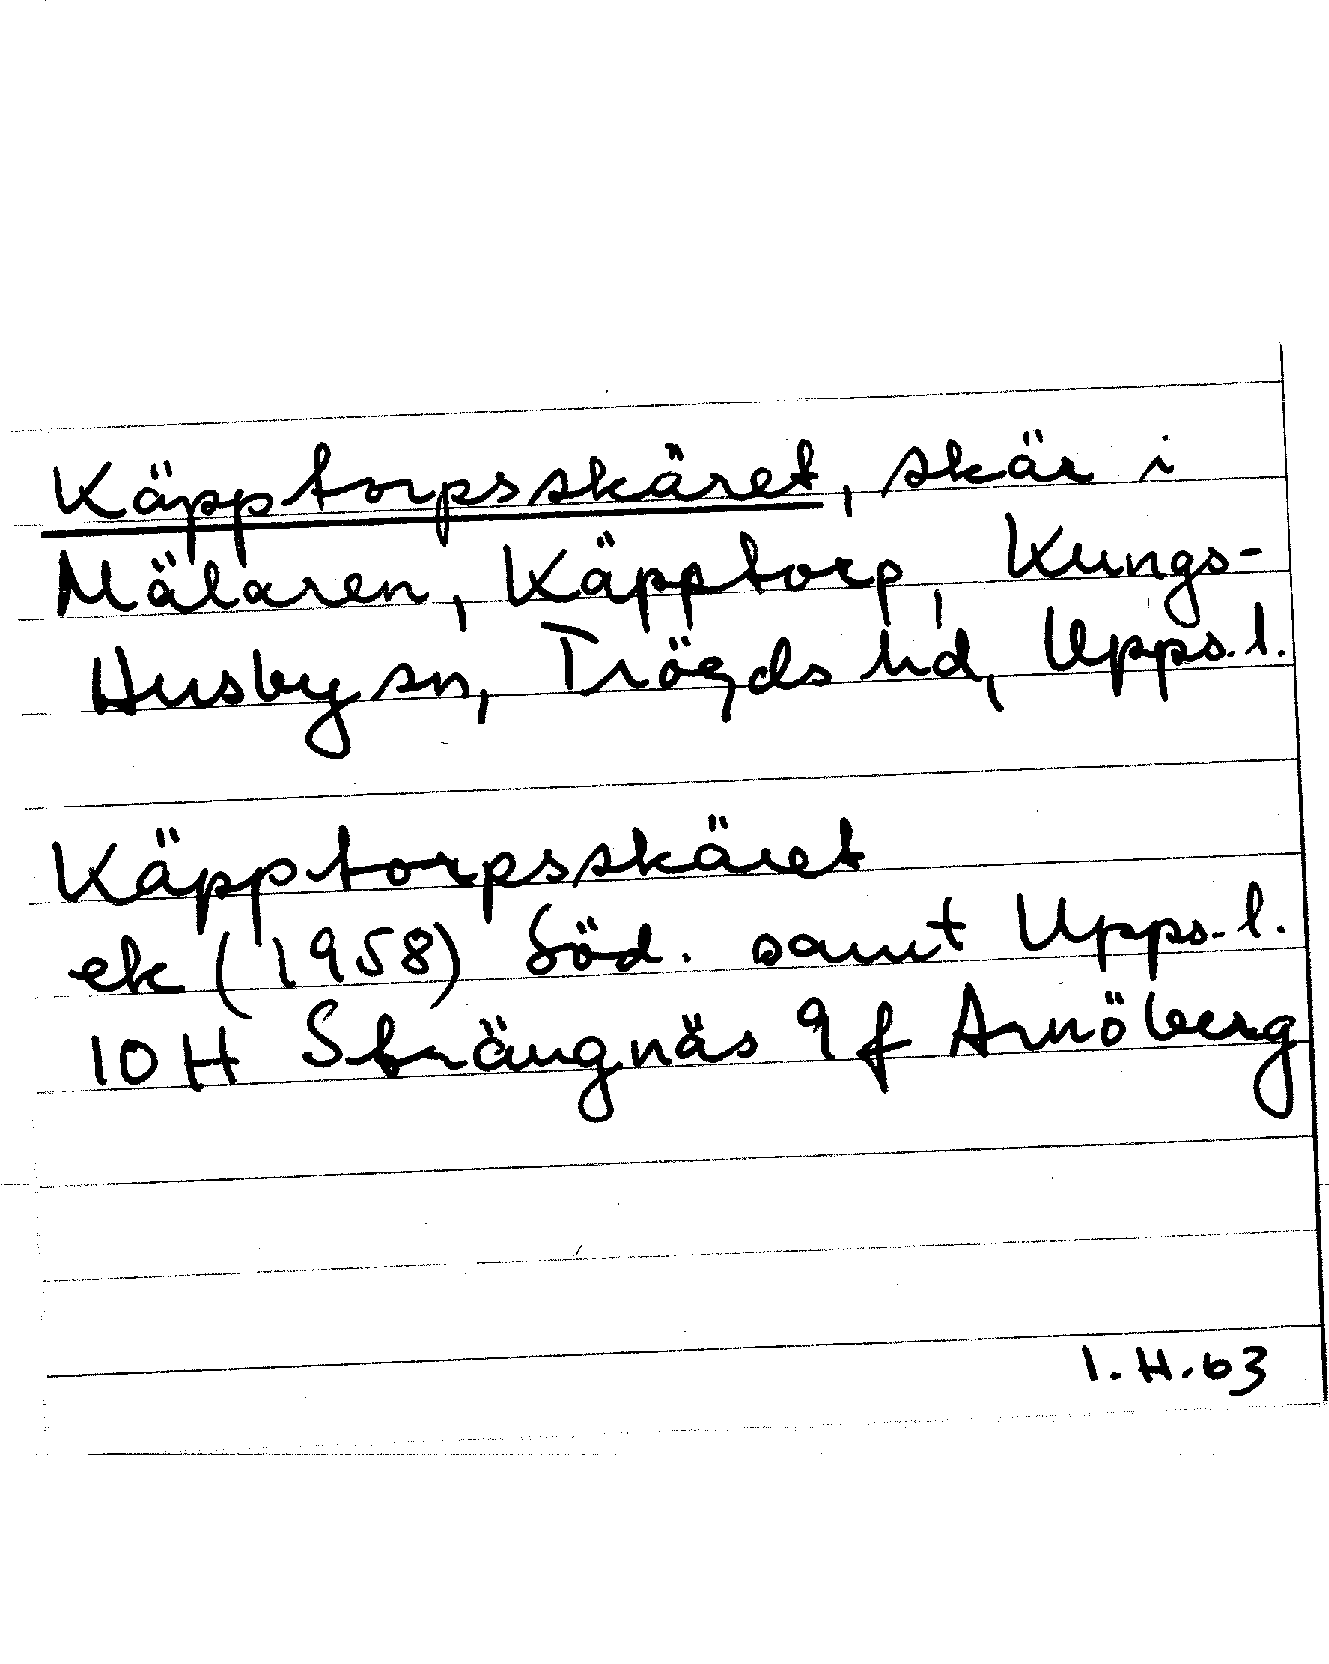 Käpptorpsskäret, skär i
Mälaren, Käpptorp, Kungs-
Husby sn, Trögds hd, Upps. l.
Käpptorpsskäret
ek (1958) Söd. samt Upps. l.
10 H Strängnäs 9 f Arnöberg
I. H. 63